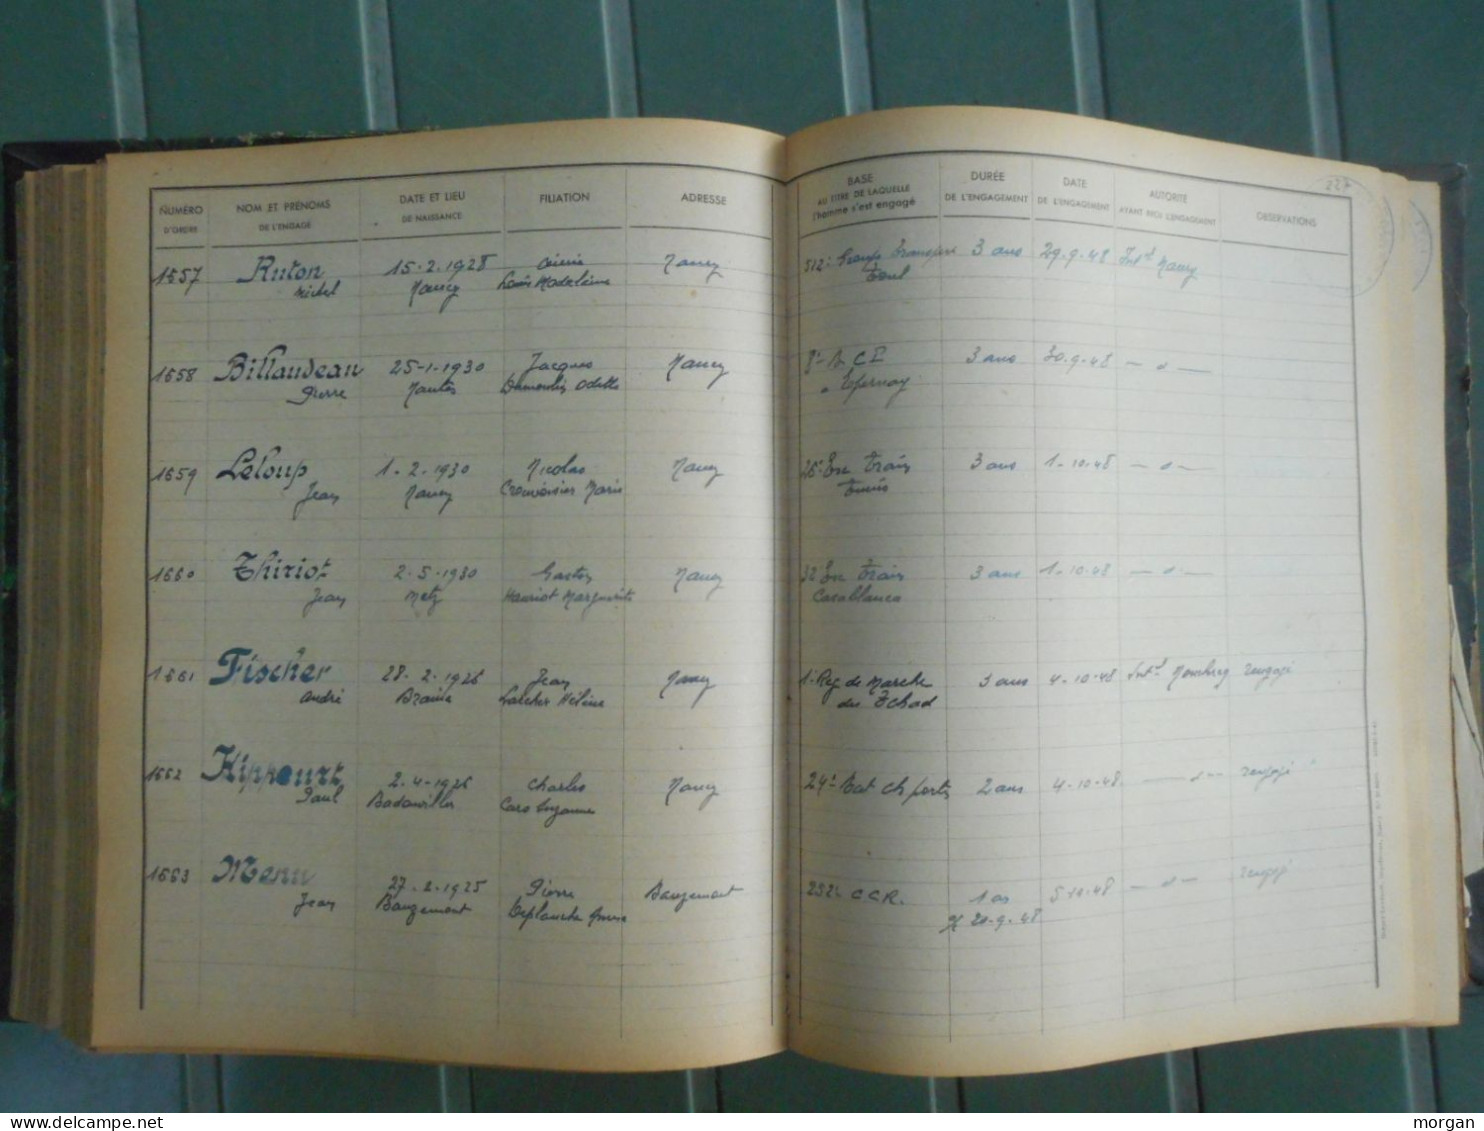 NUMÉRO D'ORDRE
NOM ET PRÉNOMS DE L'ENGAGÉ
DATE ET LIEU DE NAISSANCE
FILIATION
ADRESSE
BASE AU TITRE DE LAQUELLE l'homme s'est engagé
DURÉE DE L'ENGAGEMENT
DATE DE L'ENGAGEMENT
AUTORITÉ AYANT REÇU L'ENGAGEMENT
OBSERVATIONS
227
1657 Ruton 15-2.1928 Nancy 3 ans 29.9.48 Int^t Nancy
Michel Nancy Louis Madeleine Toul
1658 Billaudeau 25-1.1930 Jacques Nancy 8e 3 ans 30.9.48 — d —
Pierre Nantes Odette Epernay
1659 Leloup 1-2.1930 Nicolas Nancy 26e En Train 3 ans 1-10-48 — d —
Jean Nancy Crouvoisier Marie Tunis
1660 Thiriot 2-5-1930 Gaston Nancy 32 En Train 3 ans 1-10-48 — d —
Jean Metz Henriot Marguerite Casablanca
1661 Fischer 28-2-1926 Jean Nancy 1e Reg de Marche 3 ans 4-10-48 Int^t rengagé
André Larcher Hélène du Tchad
1662 2-4-1926 Charles Nancy 24e Bat ch portés 2 ans 4-10-48 — d — rengagé
Paul Badonviller Caro Suzanne
1663 Menu 27-2-1925 Pierre Bauzemont 252e C.C.R. 1 an 5-10-48 — d — rengagé
Jean Bauzemont Deplanche 20-9-48
morgan